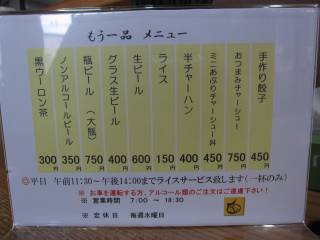 もう一品 メニュー
手作り餃子 450
おつまみチャーシュー 750
ミニあぶりチャーシュー丼 450
半チャーハン 400
ライス 150
生ビール 600
グラス生ビール 400
瓶ビール (大瓶) 750
ノンアルコールビール 350
黒ウーロン茶 300円
◎平日 午前11:30~午後14:00までライスサービス致します(一杯のみ)
※ お車を運転する方、アルコール類のご注文はご遠慮下さい!
※ 営業時間 7:00 ~ 18:30
※ 定休日 毎週水曜日